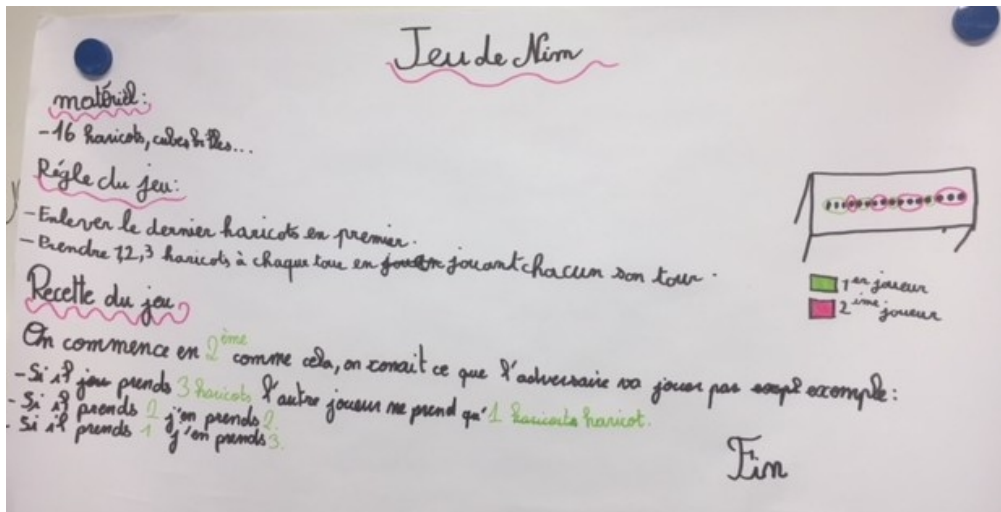 Jeu de Nim
matériel:
-16 haricots, cubes billes...
Régle du jeu:
-Enlever le dernier haricots en premier.
-Prendre 1,2,3 haricots à chaque tour en jouant chacun son tour.
1er joueur
2ième joueur
Recette du jeu
On commence en 2ème comme cela, on conait ce que l'adversaire va jouer par exemple:
-Si il jou prends 3 haricots l'autre joueur ne prend qu'1 haricot.
-Si il prends 2 j'en prends 2.
-Si il prends 1 j'en prends 3.
Fin